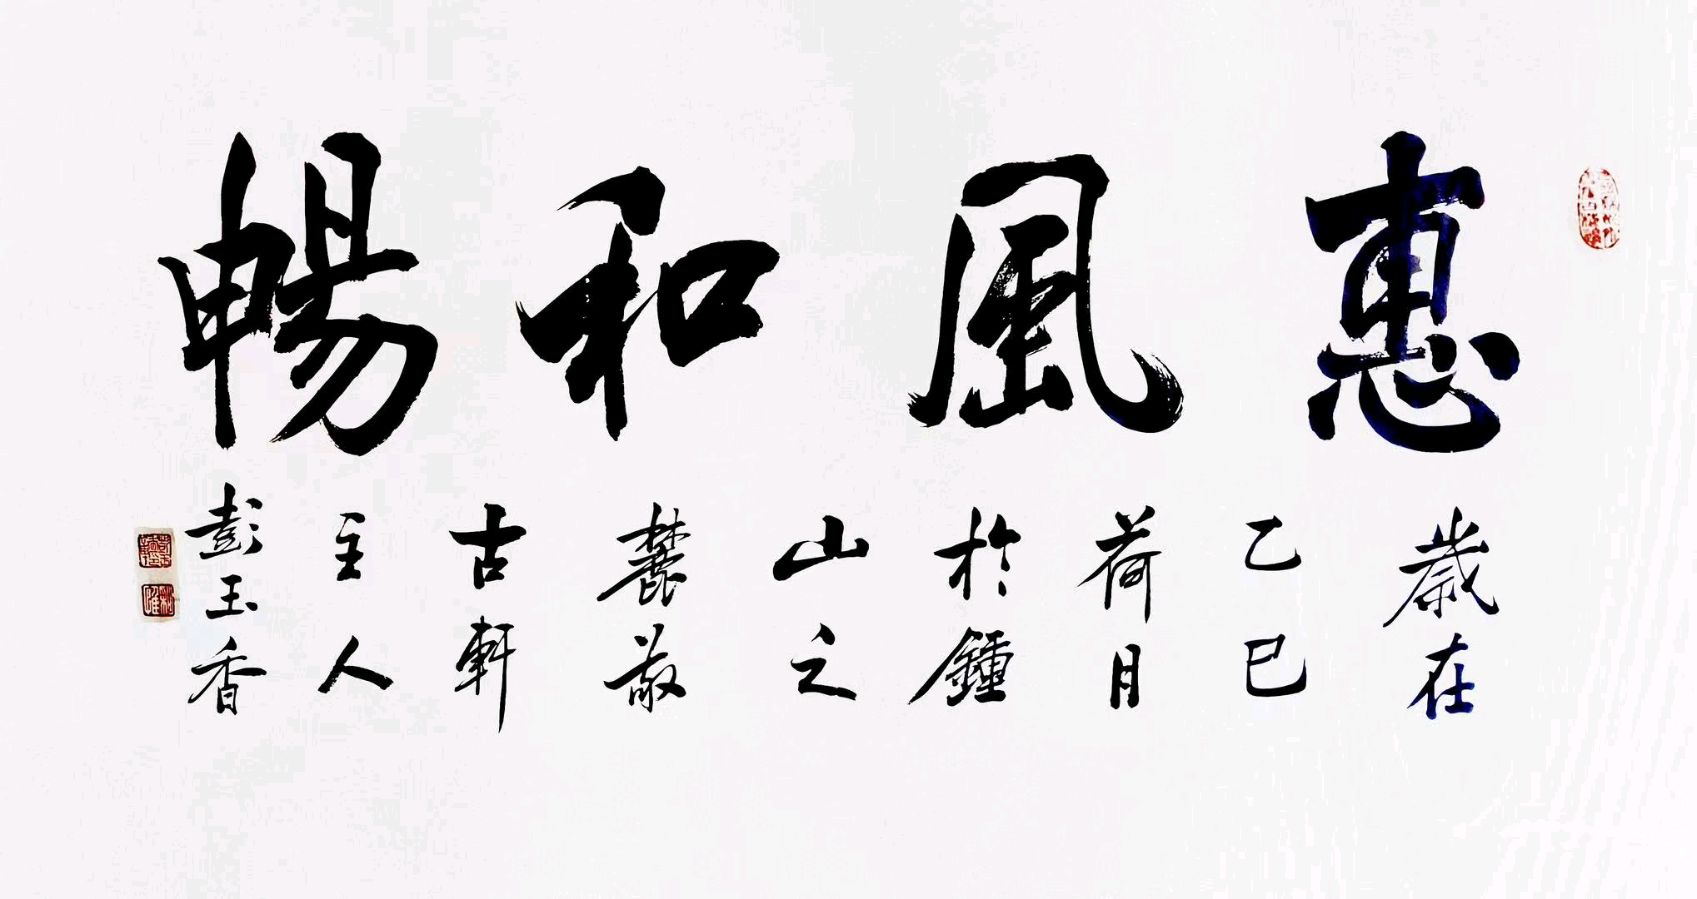 惠風和暢
歲在
乙巳
荷月
於鍾
山之
麓敬
古軒
主人
彭玉香